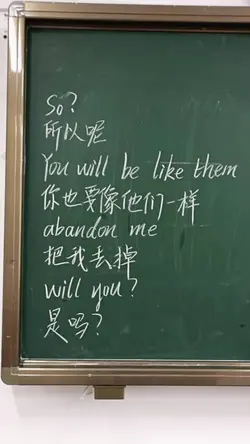 So?
所以呢
You will be like them
你也要像他们一样
abandon me
把我去掉
will you?
是吗?